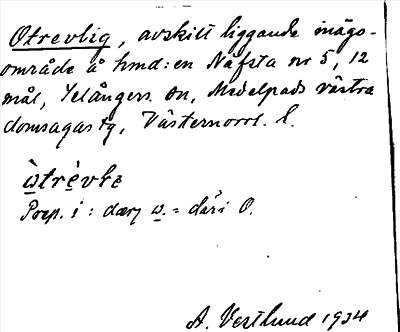 Otrevlig, avskilt liggande inägo-
område å hmd:en Näfsta nr 5, 12
mål, Selångers sn, Medelpads västra
domsagas tg, Västernorrl. l.
ὼtrὲvlɛ
Prep. i: dærj ω. = där i O.
A. Vestlund 1934